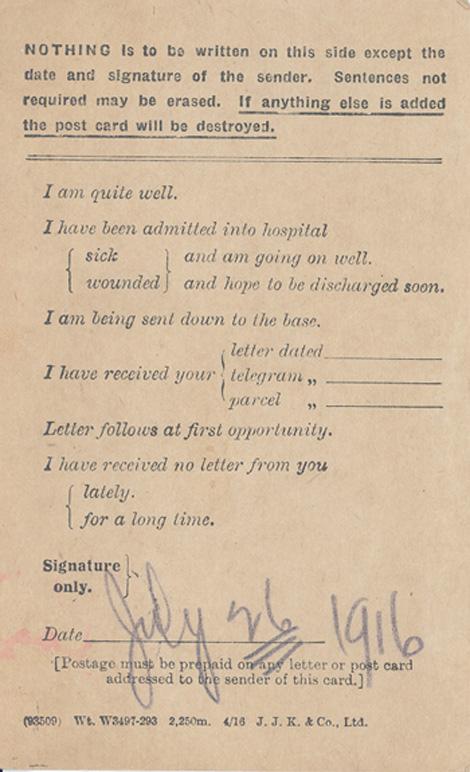 NOTHING is to be written on this side except the
date and signature of the sender. Sentences not
required may be erased. If anything else is added
the post card will be destroyed.
I am quite well.
I have been admitted into hospital
sick and am going on well.
wounded and hope to be discharged soon.
I am being sent down to the base.
letter dated
I have received your telegram „
parcel „
Letter follows at first opportunity.
I have received no letter from you
lately.
for a long time.
Signature
only.
Date July 26 1916
[Postage must be prepaid on any letter or post card
addressed to the sender of this card.]
(93509) Wt. W3497-293 2,250m. 4/16 J. J. K. & Co., Ltd.